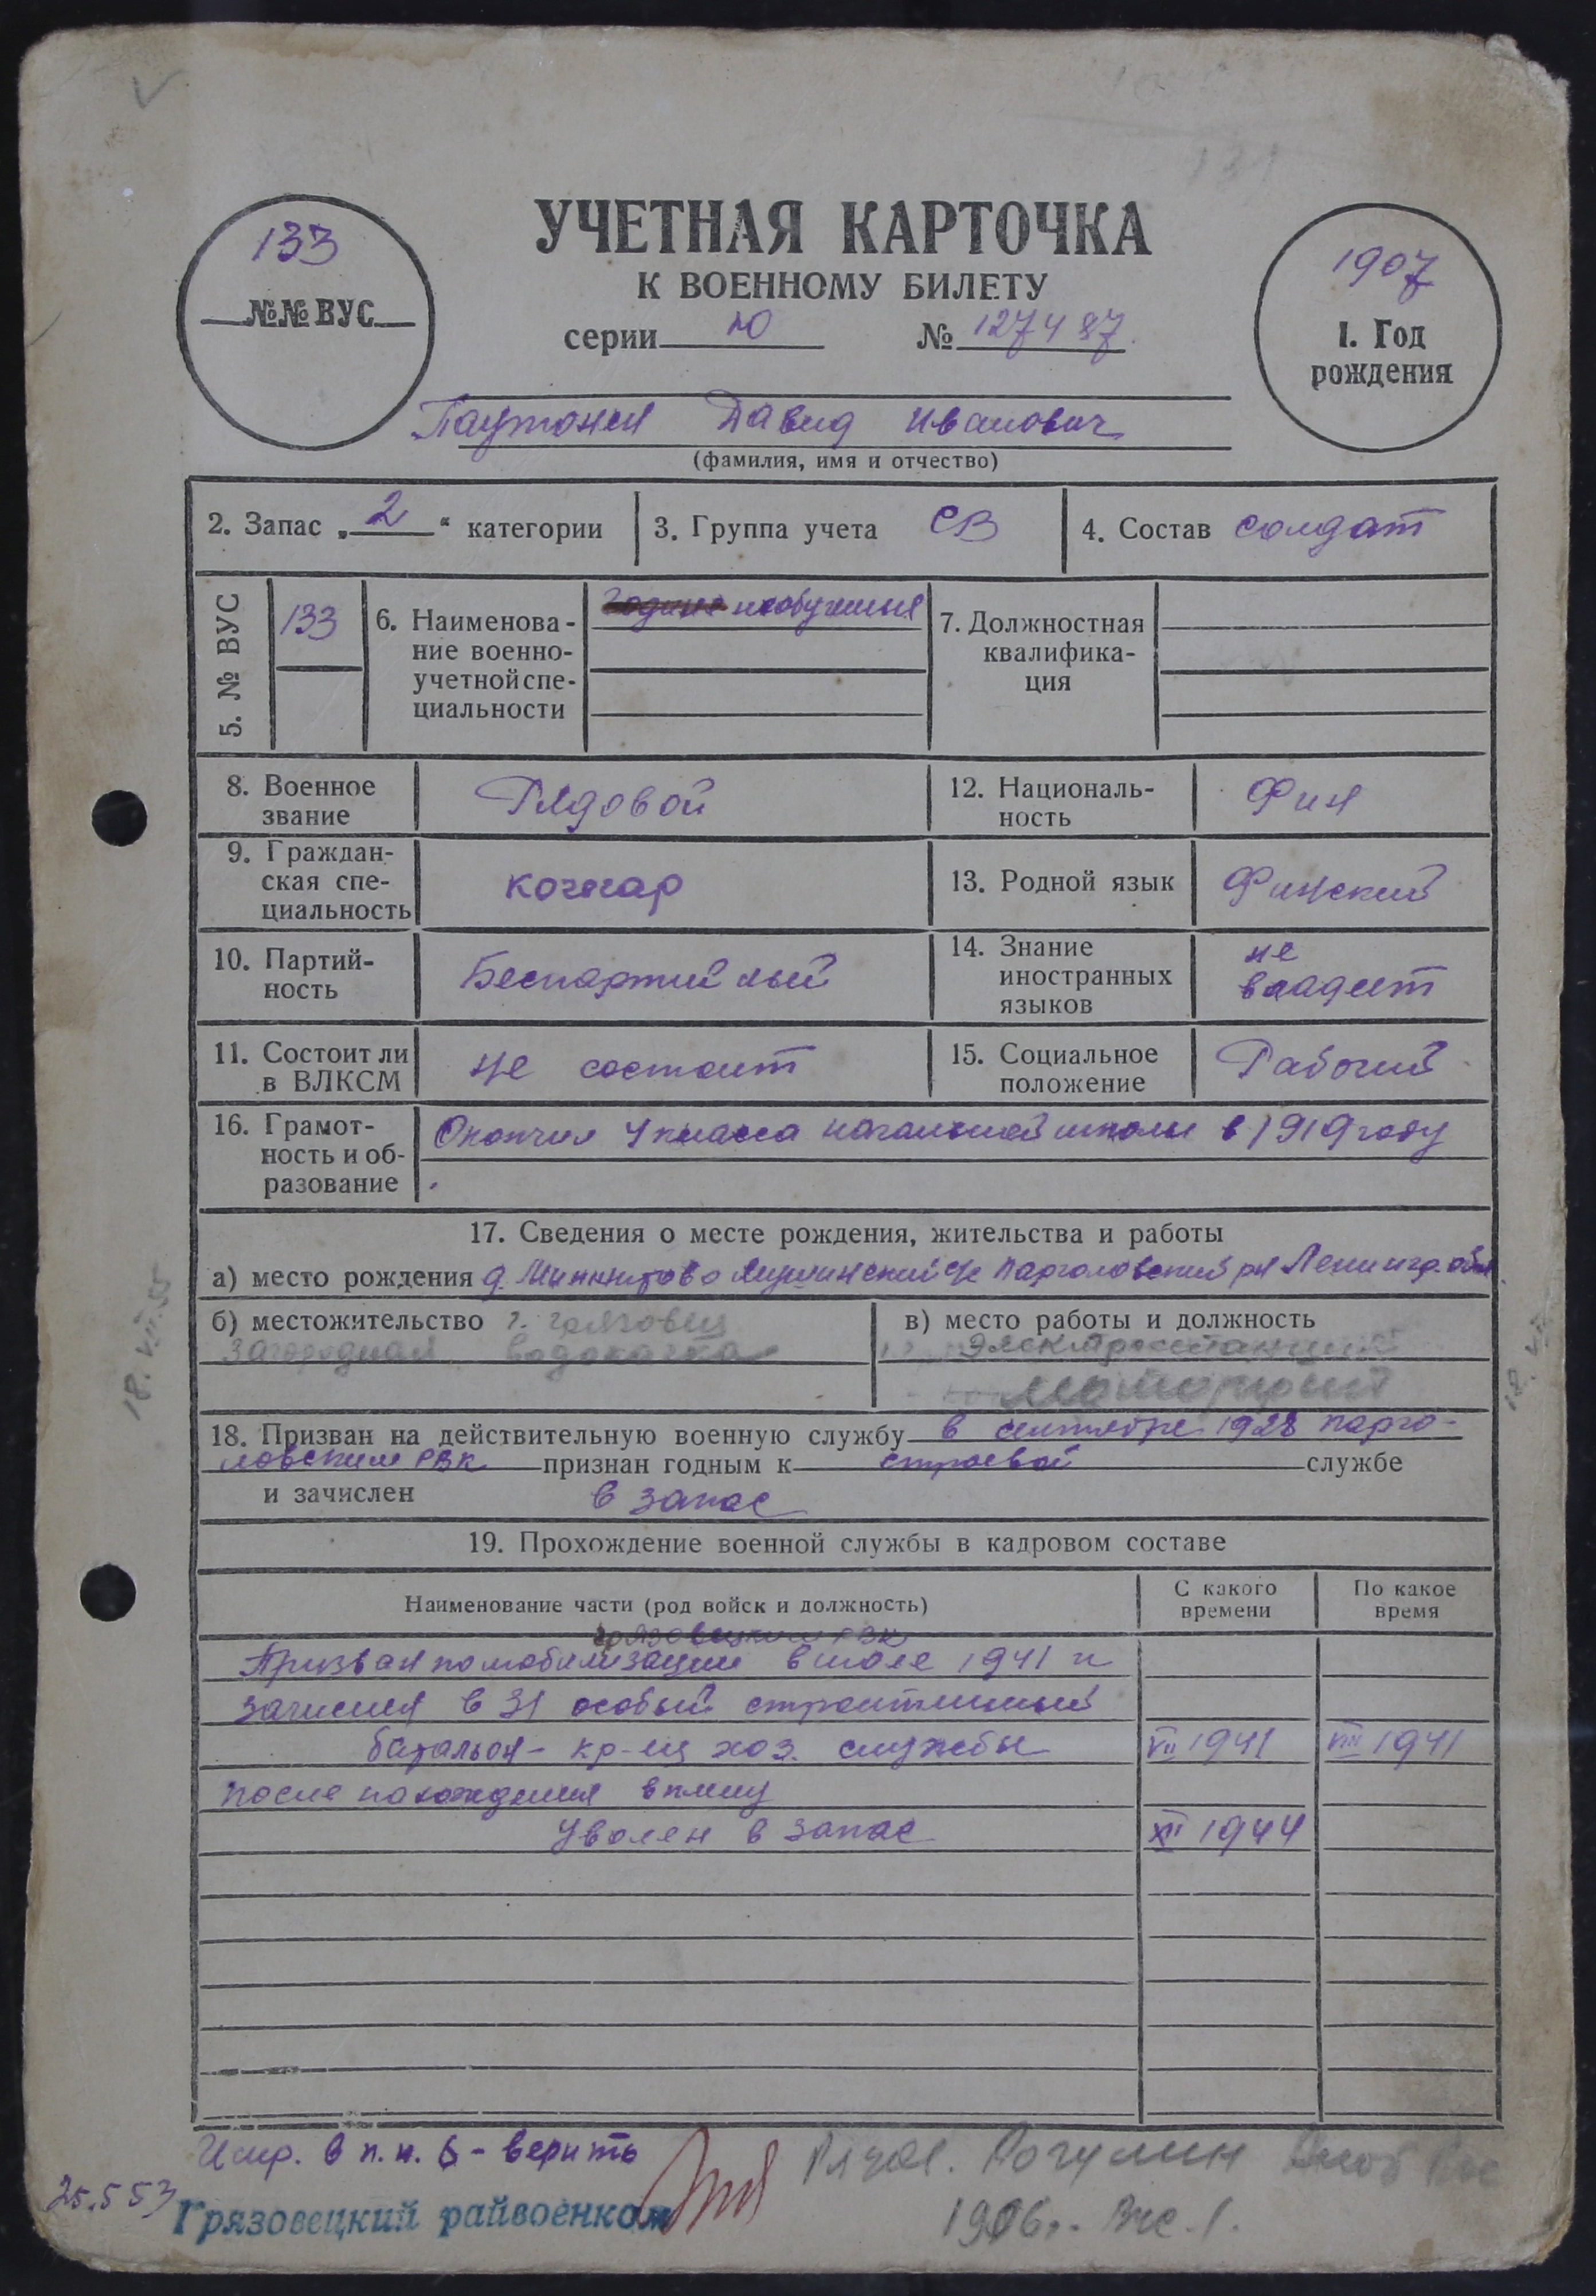 133
№№ ВУС
УЧЕТНАЯ КАРТОЧКА
К ВОЕННОМУ БИЛЕТУ
серии Ю № 127487
1907
1. Год
рождения
Паутонен Давид Иванович
(фамилия, имя и отчество)
2. Запас „2“ категории
3. Группа учета СВ
4. Состав солдат
5. № ВУС
133
6. Наименова-
ние военно-
учетной спе-
циальности
необученный
7. Должностная
квалифика-
ция
8. Военное
звание
Рядовой
12. Националь-
ность
Фин
9. Граждан-
ская спе-
циальность
кочегар
13. Родной язык Финский
10. Партий-
ность
Беспартийный
14. Знание
иностранных
языков
не
владеет
11. Состоит ли
в ВЛКСМ
не состоит
15. Социальное
положение
Рабочий
16. Грамот-
ность и об-
разование
Окончил 4 класса начальной школы в 1919 году
17. Сведения о месте рождения, жительства и работы
а) место рождения д. Парголовский рн Ленингр. обл.
б) местожительство г. Грязовец
Загородная водокачка
в) место работы и должность
Электростанция
18. Призван на действительную военную службу в сентябре 1928 Парго-
ловским РВК признан годным к строевой службе
и зачислен в запас
19. Прохождение военной службы в кадровом составе
Наименование части (род войск и должность)
С какого
времени
По какое
время
Грязовецким РВК
Призван по мобилизации в июле 1941 и
зачислен в 31 особый строительный
батальон - кр-ец хоз. службы VII 1941 VIII 1941
после нахождения в плену
Уволен в запас XII 1944
Испр. в п. н. 6 - верить
25.5 53
Грязовецкий райвоенком
Рогулин
18. VII. 55